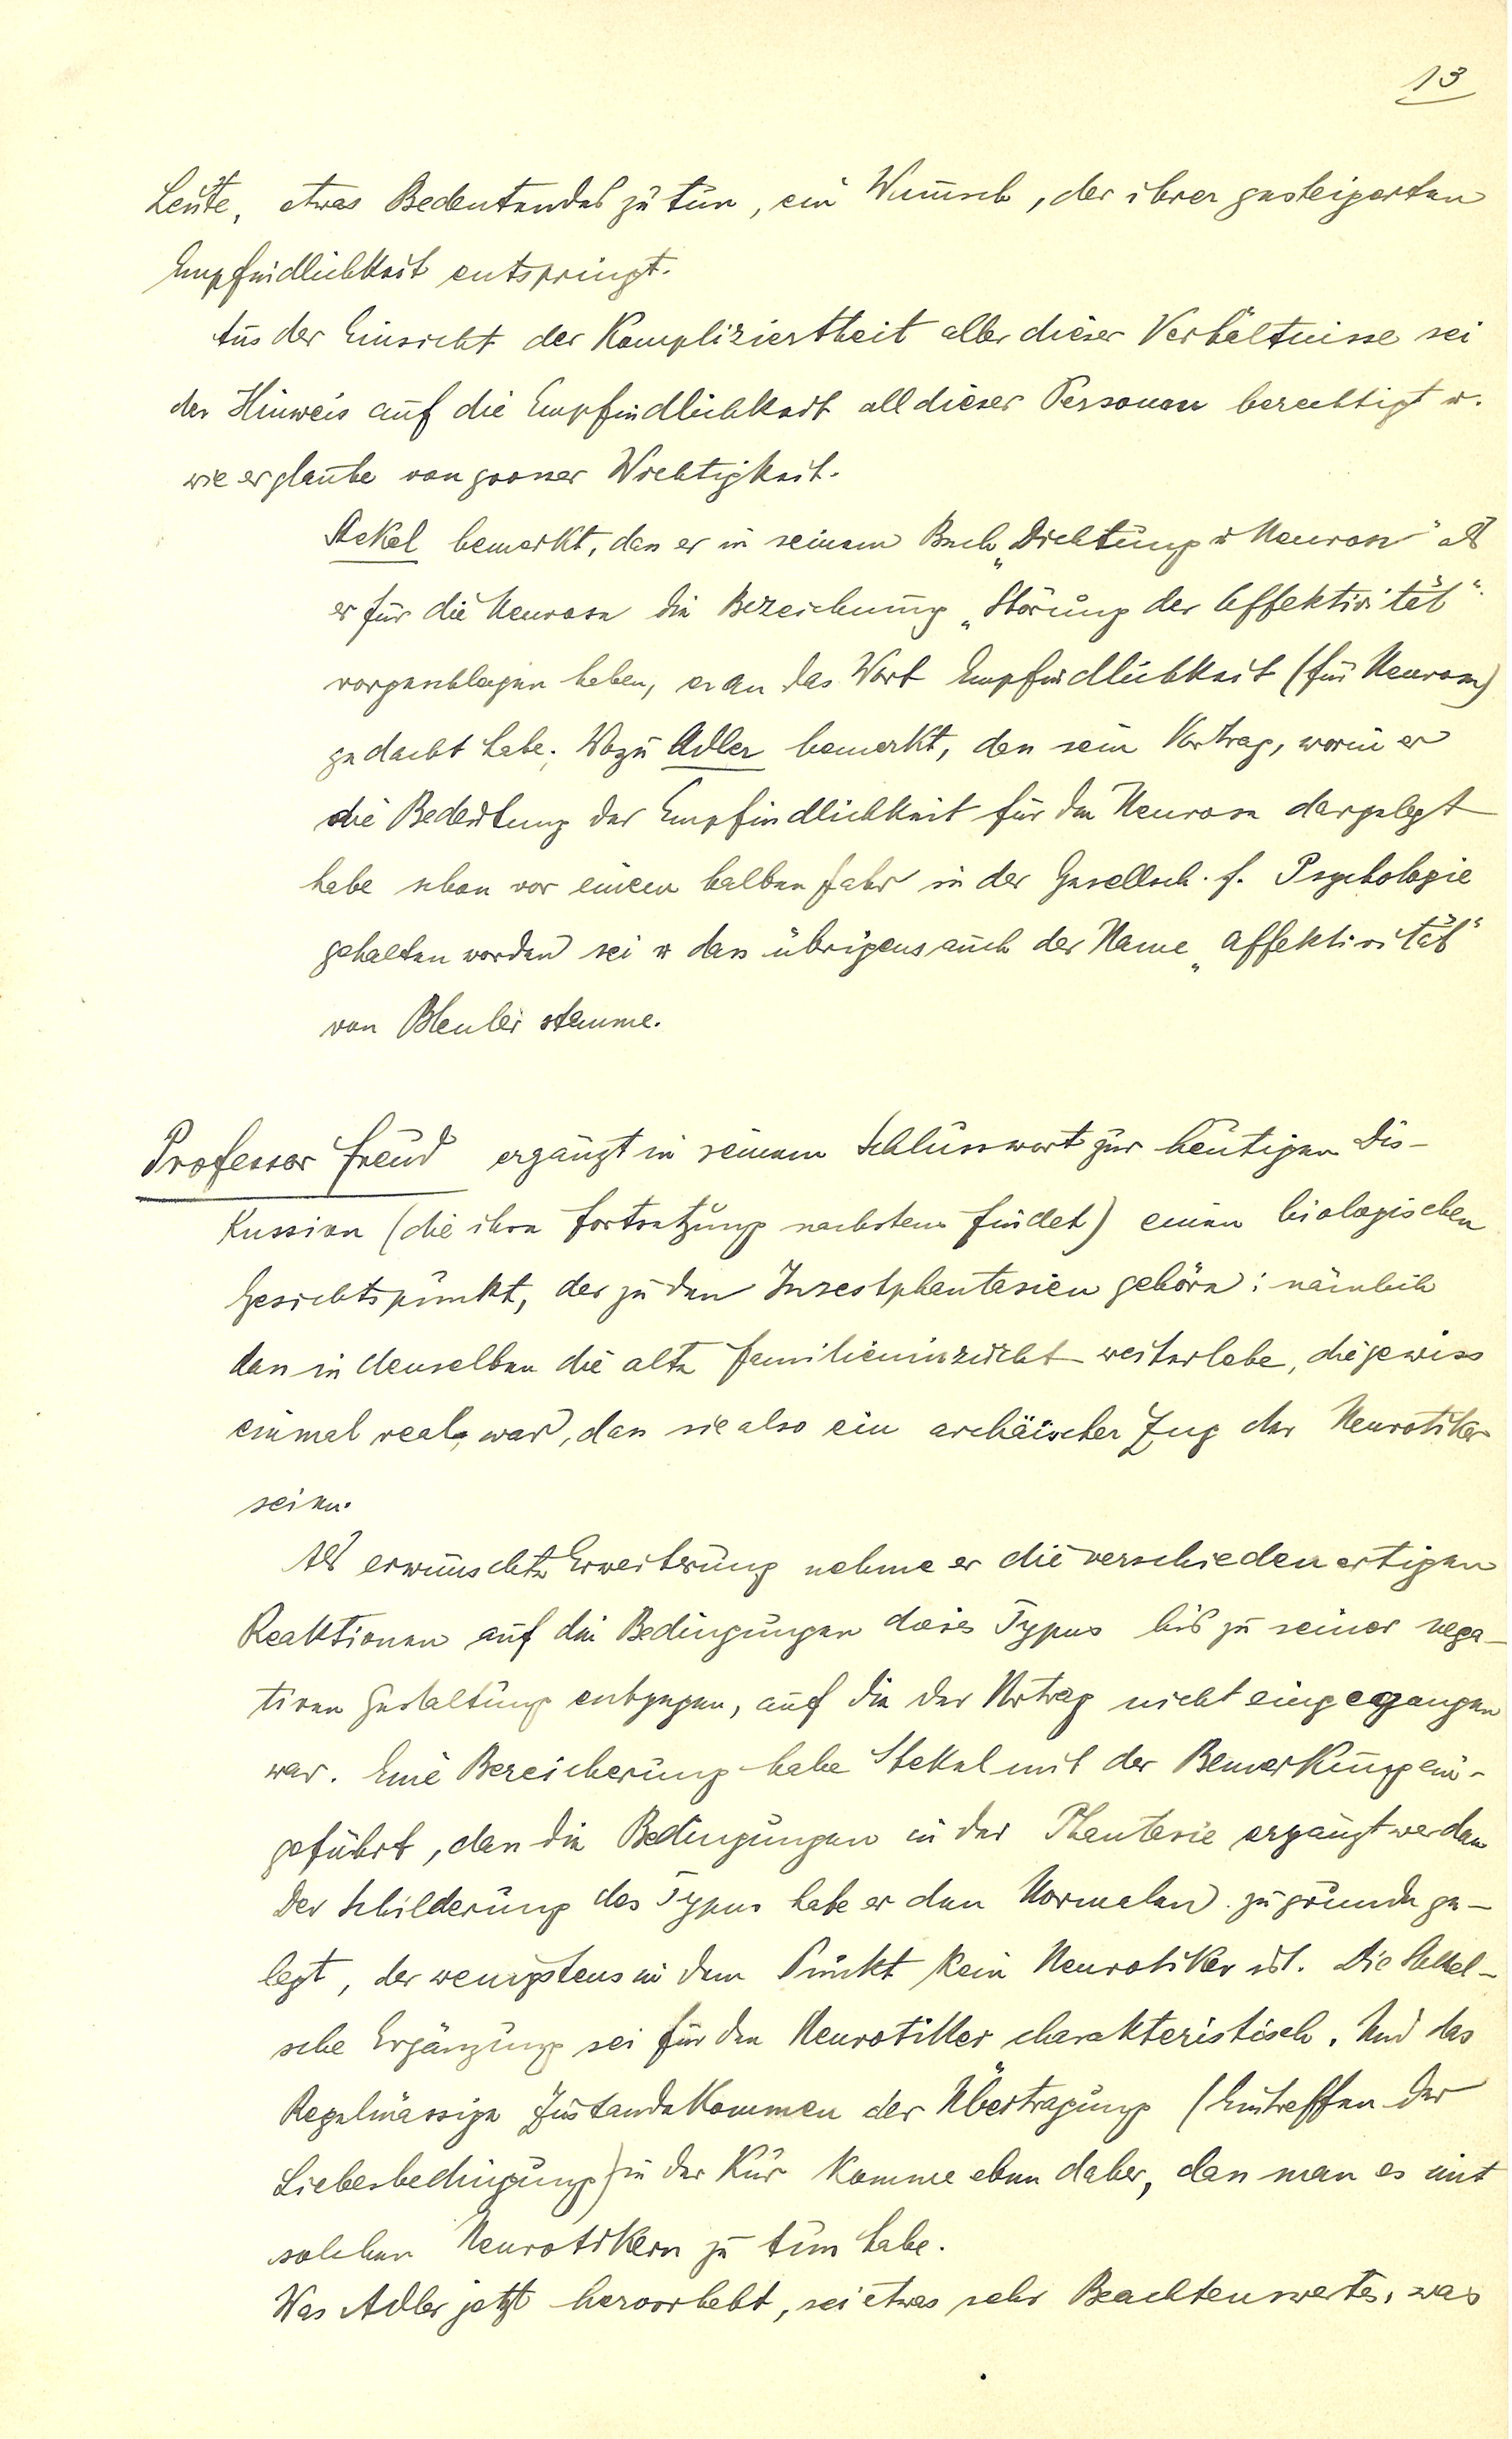 13
Leute, etwas Bedeutendes zu tun, ein Wunsch, der ihrer gesteigerten
Empfindlichkeit entspringt.
Aus der Einsicht der Kompliziertheit aller dieser Verhältnisse sei
der Hinweis auf die Empfindlichkeit all dieser Personen berechtigt u.
wie er glaube von grosser Wichtigkeit.
Stekel bemerkt, dass er in seinem Buch „Dichtung u Neurose" als
er für die Neurose die Bezeichnung „Störung der Affektivität"
vorgeschlagen haben, er an das Wort Empfindlichkeit (für Neurose)
gedacht habe. Wozu Adler bemerkt, dass sein Vortrag, worin er
die Bedeutung der Empfindlichkeit für die Neurose dargelegt
habe schon vor einem halben Jahr in der Gesellsch. f. Psychologie
gehalten worden sei u dass übrigens auch der Name „Affektivität"
von Bleuler stamme.
Professor Freud ergänzt in seinem Schlusswort zur heutigen Dis-
kussion (die ihre Fortsetzung nächstens findet) einen biologischen
Gesichtspunkt, der zu den Inzestphantasien gehöre: nämlich
dass in denselben die alte Familieninzucht weiterlebe, die gewiss
einmal real war, dass sie also ein archäischer Zug der Neurotiker
seien.
Als erwünschte Erweiterung nehme er die verschiedenartigen
Reaktionen auf die Bedingungen dieses Typus bis zu seiner nega-
tiven Gestaltung entgegen, auf die der Vortrag nicht eingegangen
war. Eine Bereicherung habe Stekel mit der Bemerkung ein-
geführt, dass die Bedingungen in der Phantasie ergänzt werden
Der Schilderung des Typus habe er den Normalen zugrunde ge-
legt, der wenigstens in dem Punkt kein Neurotiker ist. Die Stekel-
sche Ergänzung sei für den Neurotiker charakteristisch. Und das
Regelmässige Zustandekommen der Übertragung (Eintreffen der
Liebesbedingung) in der Kur komme eben daher, dass man es mit
solchen Neurotikern zu tun habe.
Was Adler jetzt hervorhebt, sei etwas sehr Beachtenswertes, was